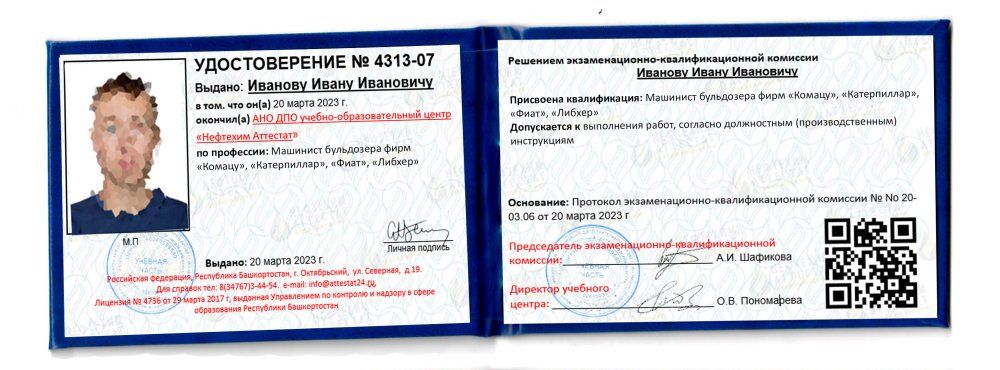 УДОСТОВЕРЕНИЕ № 4313-07
Выдано: Иванову Ивану Ивановичу
в том. что он(а) 20 марта 2023 г.
окончил(а) АНО ДПО учебно-образовательный центр
«Нефтехим Аттестат»
по профессии: Машинист бульдозера фирм
«Комацу», «Катерпиллар», «Фиат», «Либхер»
М.П
Личная подпись
УЧЕБНАЯ
ЧАСТЬ
Выдано: 20 марта 2023 г.
Российская федерация, Республика Башкортостан, г. Октябрьский, ул. Северная, д.19.
Для справок тел: 8(34767)3-44-54. e-mail: info@attestat24.ru,
Лицензия № 4736 от 29 марта 2017 г, выданная Управлением по контролю и надзору в сфере
образования Республики Башкортостан
Решением экзаменационно-квалификационной комиссии
Иванову Ивану Ивановичу
Присвоена квалификация: Машинист бульдозера фирм «Комацу», «Катерпиллар»,
«Фиат», «Либхер»
Допускается к выполнения работ, согласно должностным (производственным)
инструкциям
Основание: Протокол экзаменационно-квалификационной комиссии № No 20-
03.06 от 20 марта 2023 г
Председатель экзаменационно-квалификационной
комиссии: А.И. Шафикова
УЧЕБНАЯ
ЧАСТЬ
Директор учебного
центра: О.В. Пономарева